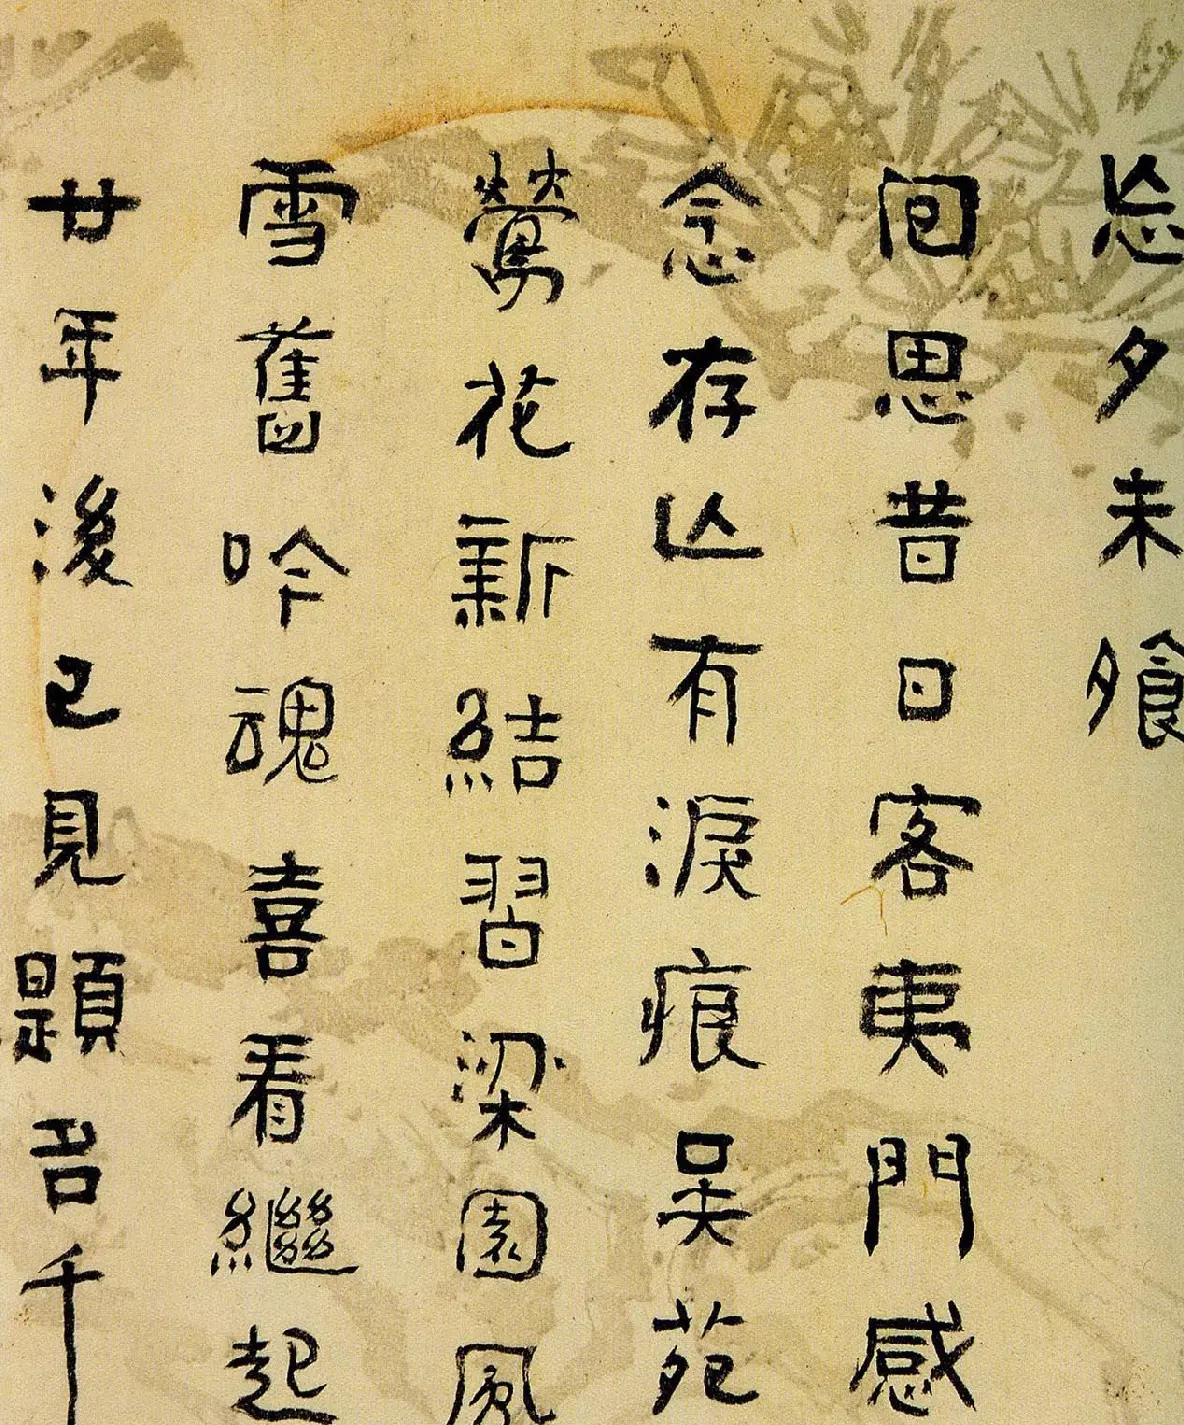 忘夕未飧
回思昔日客夷門感
念存亡有淚痕吳苑
鶯花新結習梁園風
雪舊吟魂喜看繼起
廿年後已見題名千